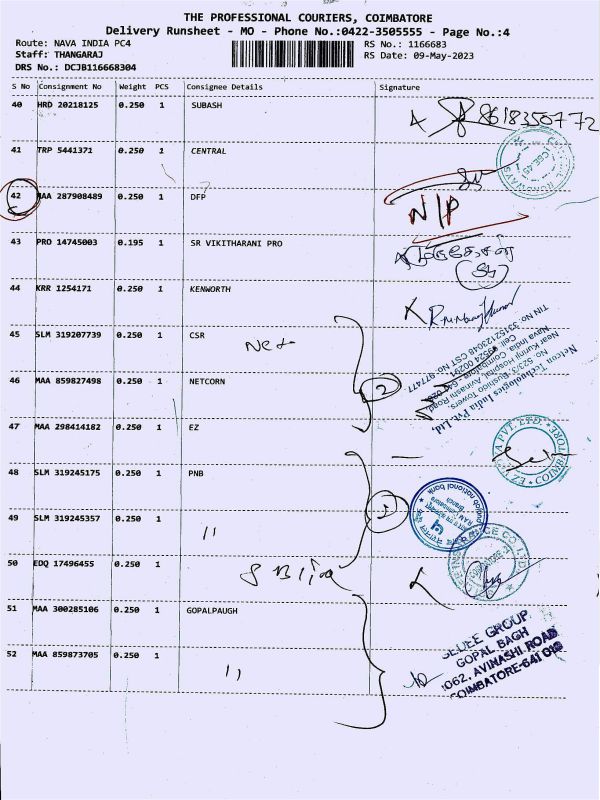 THE PROFESSIONAL COURIERS, COIMBATORE
Delivery Runsheet - MO - Phone No.:0422-3505555 - Page No.:4
Route: NAVA INDIA PC4 RS No.: 1166683
Staff: THANGARAJ RS Date: 09-May-2023
DRS No.: DCJB116668304
S No Consignment No Weight PCS Consignee Details Signature
40 HRD 20218125 0.250 1 SUBASH 8618350772
41 TRP 5441371 0.250 1 CENTRAL
42 MAA 287908489 0.250 1 DFP N/P
43 PRO 14745003 0.195 1 SR VIKITHARANI PRO
44 KRR 1254171 0.250 1 KENWORTH
45 SLM 319207739 0.250 1 CSR
46 MAA 859827498 0.250 1 NETCORN 2
Netcon Technologies India Pvt Ltd,
No. 523/3- Bushido Towers,
Near Kurinji Hospital, Avinashi Road,
Nava India, Coimbatore
TIN No. 33152123048 CST No 977477
47 MAA 298414182 0.250 1 EZ
48 SLM 319245175 0.250 1 PNB
punjab national bank
49 SLM 319245357 0.250 1 "
50 EDQ 17496455 0.250 1
51 MAA 300285106 0.250 1 GOPALPAUGH
52 MAA 859873705 0.250 1 "
GROUP
GOPAL BAGH
1062, AVINASHI ROAD
COIMBATORE-641 018